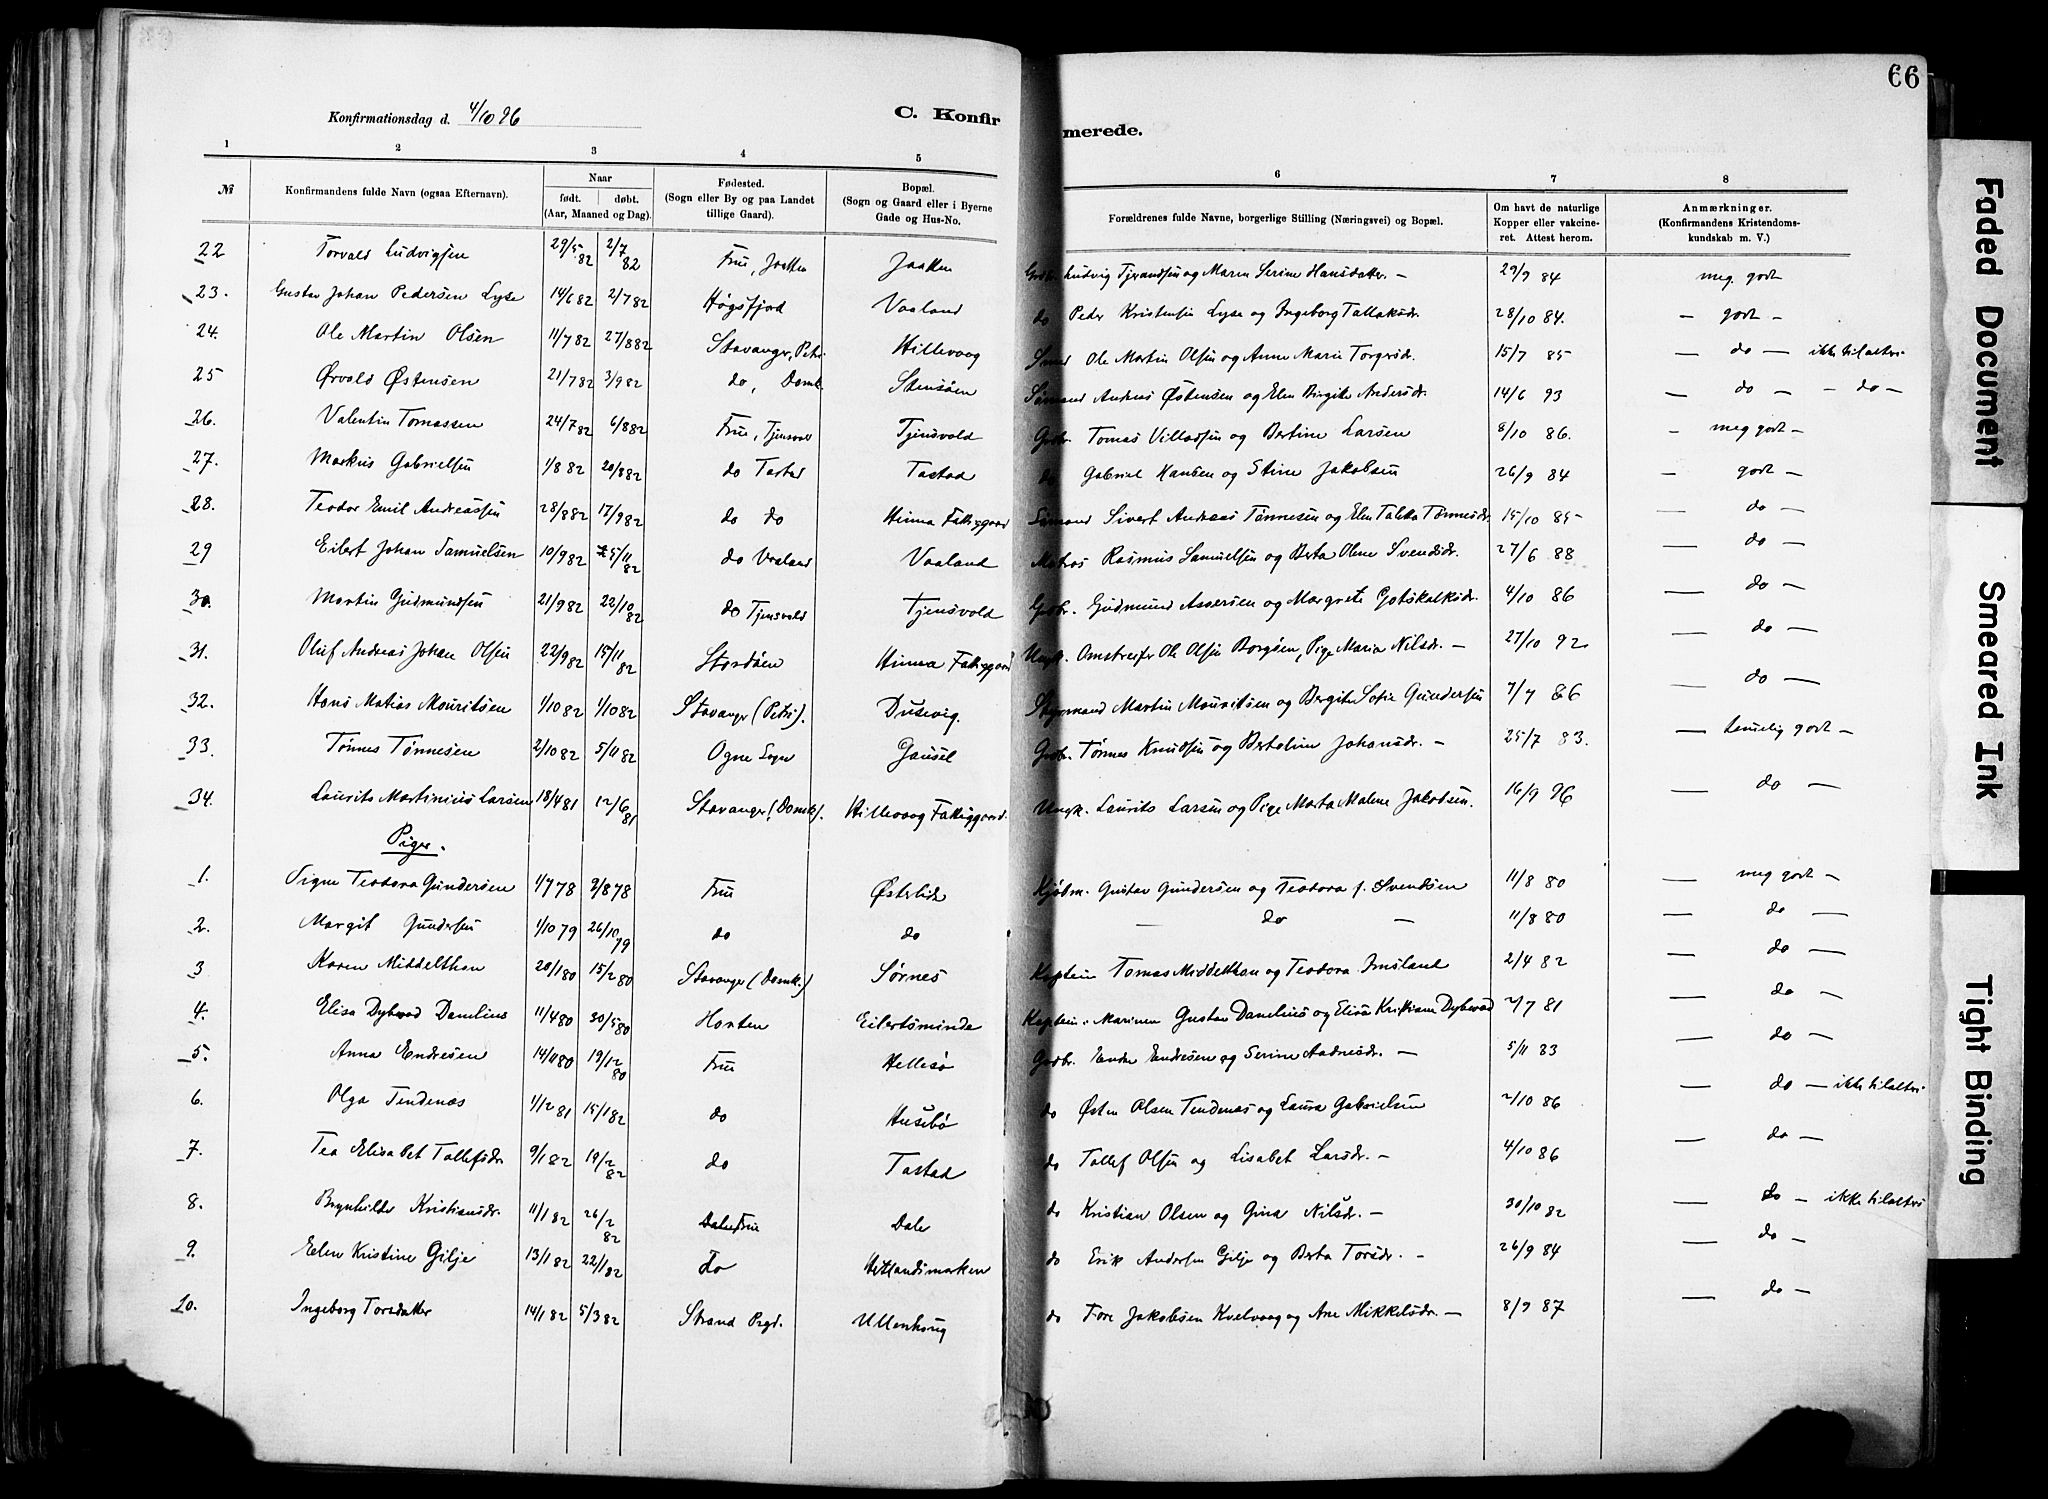 66
Konfirmationsdag d. 4/10 96
C. Konfirmerede.
1 2 3 4 5 6 7 8
№ Konfirmandens fulde Navn (ogsaa Efternavn). Naar født. døbt. (Aar, Maaned og Dag). Fødested. (Sogn eller By og paa Landet tillige Gaard). Bopæl. (Sogn og Gaard eller i Byerne Gade og Hus-No. Forældrenes fulde Navne, borgerlige Stilling (Næringsvei) og Bopæl. Om havt de naturlige Kopper eller vakcineret. Attest herom. Anmærkninger. (Konfirmandens Kristendomskundskab m. V.)
22 Torvald Ludvigsen 29/5 82 2/7 82 Frue, Jaatten Jaatten Grdbr. Ludvig Tjerandsen og Maren Serine Hansdatter. — 29/9 84 meg. godt
23. Gustav Johan Pedersen Lyse 14/6 82 2/7 82 Høgsfjord Vaaland do Peder Kristensen Lyse og Ingeborg Tallaksdr. 28/10 84. — godt —
24. Ole Martin Olsen 11/7 82 27/8 82 Stavanger, Petri Hillevaag Smed Ole Martin Olsen og Anne Marie Torgersdr. 15/7 85 — do — ikke til alters
25 Ørvald Østensen 21/7 82 3/9 82 do, Domk. Stensøen Sømand Andreas Østensen og Elen Birgite Andersdr. 14/6 93 — do — — do —
26. Valentin Tomassen 24/7 82 6/8 82 Frue, Tjensvold Tjensvold Grdbr. Tomas Villadsen og Bertine Larsen 8/10 86. — meg godt —
27. Markus Gabrielsen 1/8 82 20/8 82 do Tastad Tastad do Gabriel Hansen og Stine Jakobsen 26/9 84 — godt —
28. Teodor Emil Andreassen 28/8 82 17/9 82 do do Hinna Fattiggaard Sømand Sivert Andreas Tønnesen og Elen Taletta Tønnesdr. 15/10 85 — do —
29 Eilert Johan Samuelsen 10/9 82 5/11 82 do Vaaland Vaaland Matros Rasmus Samuelsen og Berta Olene Svendsdr. 27/6 88 — do —
30. Martin Gudmundsen 21/9 82 22/10 82 do Tjensvold Tjensvold Grdbr. Gudmund Assersen og Margrete Gotskalksdr. 4/10 86 — do —
31. Oluf Andreas Johan Olsen 22/9 82 15/11 82 Stordøen Hinna Fattiggaard Ungk. Omstreifer Ole Olsen Borgøen, Pige Maria Nilsdr. — 27/10 92 — do —
32. Hans Matias Mouritsen 1/10 82 1/10 82 Stavanger (Petri). Dusevig. Styrmand Martin Mouritsen og Bergite Sofie Gundersen 7/7 86 — do —
33. Tønnes Tønnesen 2/10 82 5/11 82 Ogne Sogn Gausel Grdbr. Tønnes Knudsen og Bertoline Johansdr. — 25/7 83. — temmelig godt —
34. Laurits Martinius Larsen 18/4 81 12/6 81 Stavanger (Domk). Hillevaag Fattiggaard. Ungk. Laurits Larsen og Pige Marta Malene Jakobsen. 16/9 96 — do —
Piger.
1. Signe Teodora Gundersen 1/7 78 2/8 78 Frue Østerlide Kjøbm. Gustav Gundersen og Teodora f. Svendsen 11/8 80 — meg godt —
2. Margit Gundersen 1/10 79 26/10 79 do do — do — 11/8 80 — do —
3 Karen Middelthon 20/1 80 15/2 80 Stavanger (Domk.) Sørnes Kaptein Tomas Middelthon og Teodora Imsland 2/4 82 — do —
4. Elisa Dybwad Danelius 11/4 80 30/5 80 Horten Eilertsminde Kaptein i Marinen Gustav Danelius og Elisa Kristiane Dybwad 2/7 81 — do —
5. Anna Endresen 14/11 80 19/12 80 Frue Hillesø Grdbr. Endre Endresen og Serine Aadnesdr. — 5/11 83 — do —
6. Olga Tendenæs 1/12 81 15/1 82 do Husebø do Østen Olsen Tendenæs og Laura Gabrielsen 2/10 86 — do — ikke til alters
7. Tea Elisabet Tollefsdr. 9/1 82 19/2 82 do Tastad do Tollef Olsen og Lisabet Larsdr. — 4/10 86 — do —
8. Brynhilde Kristiansdr. 11/1 82 26/2 82 Dale Frue Dale do Kristian Olsen og Gina Nilsdr. — 30/10 82 — do — ikke til alters
9. Elen Kristine Gilje 13/1 82 22/1 82 do Hetlandsmarken do Erik Andersen Gilje og Berta Torsdr. — 26/9 84 — do —
10. Ingeborg Torsdatter 14/1 82 5/3 82 Strand Prgd. Ullenhaug do Tore Jakobsen Kvelvaag og Ane Mikkelsdr. — 8/9 87 — do —
Faded Document
Smeared Ink
Tight Binding